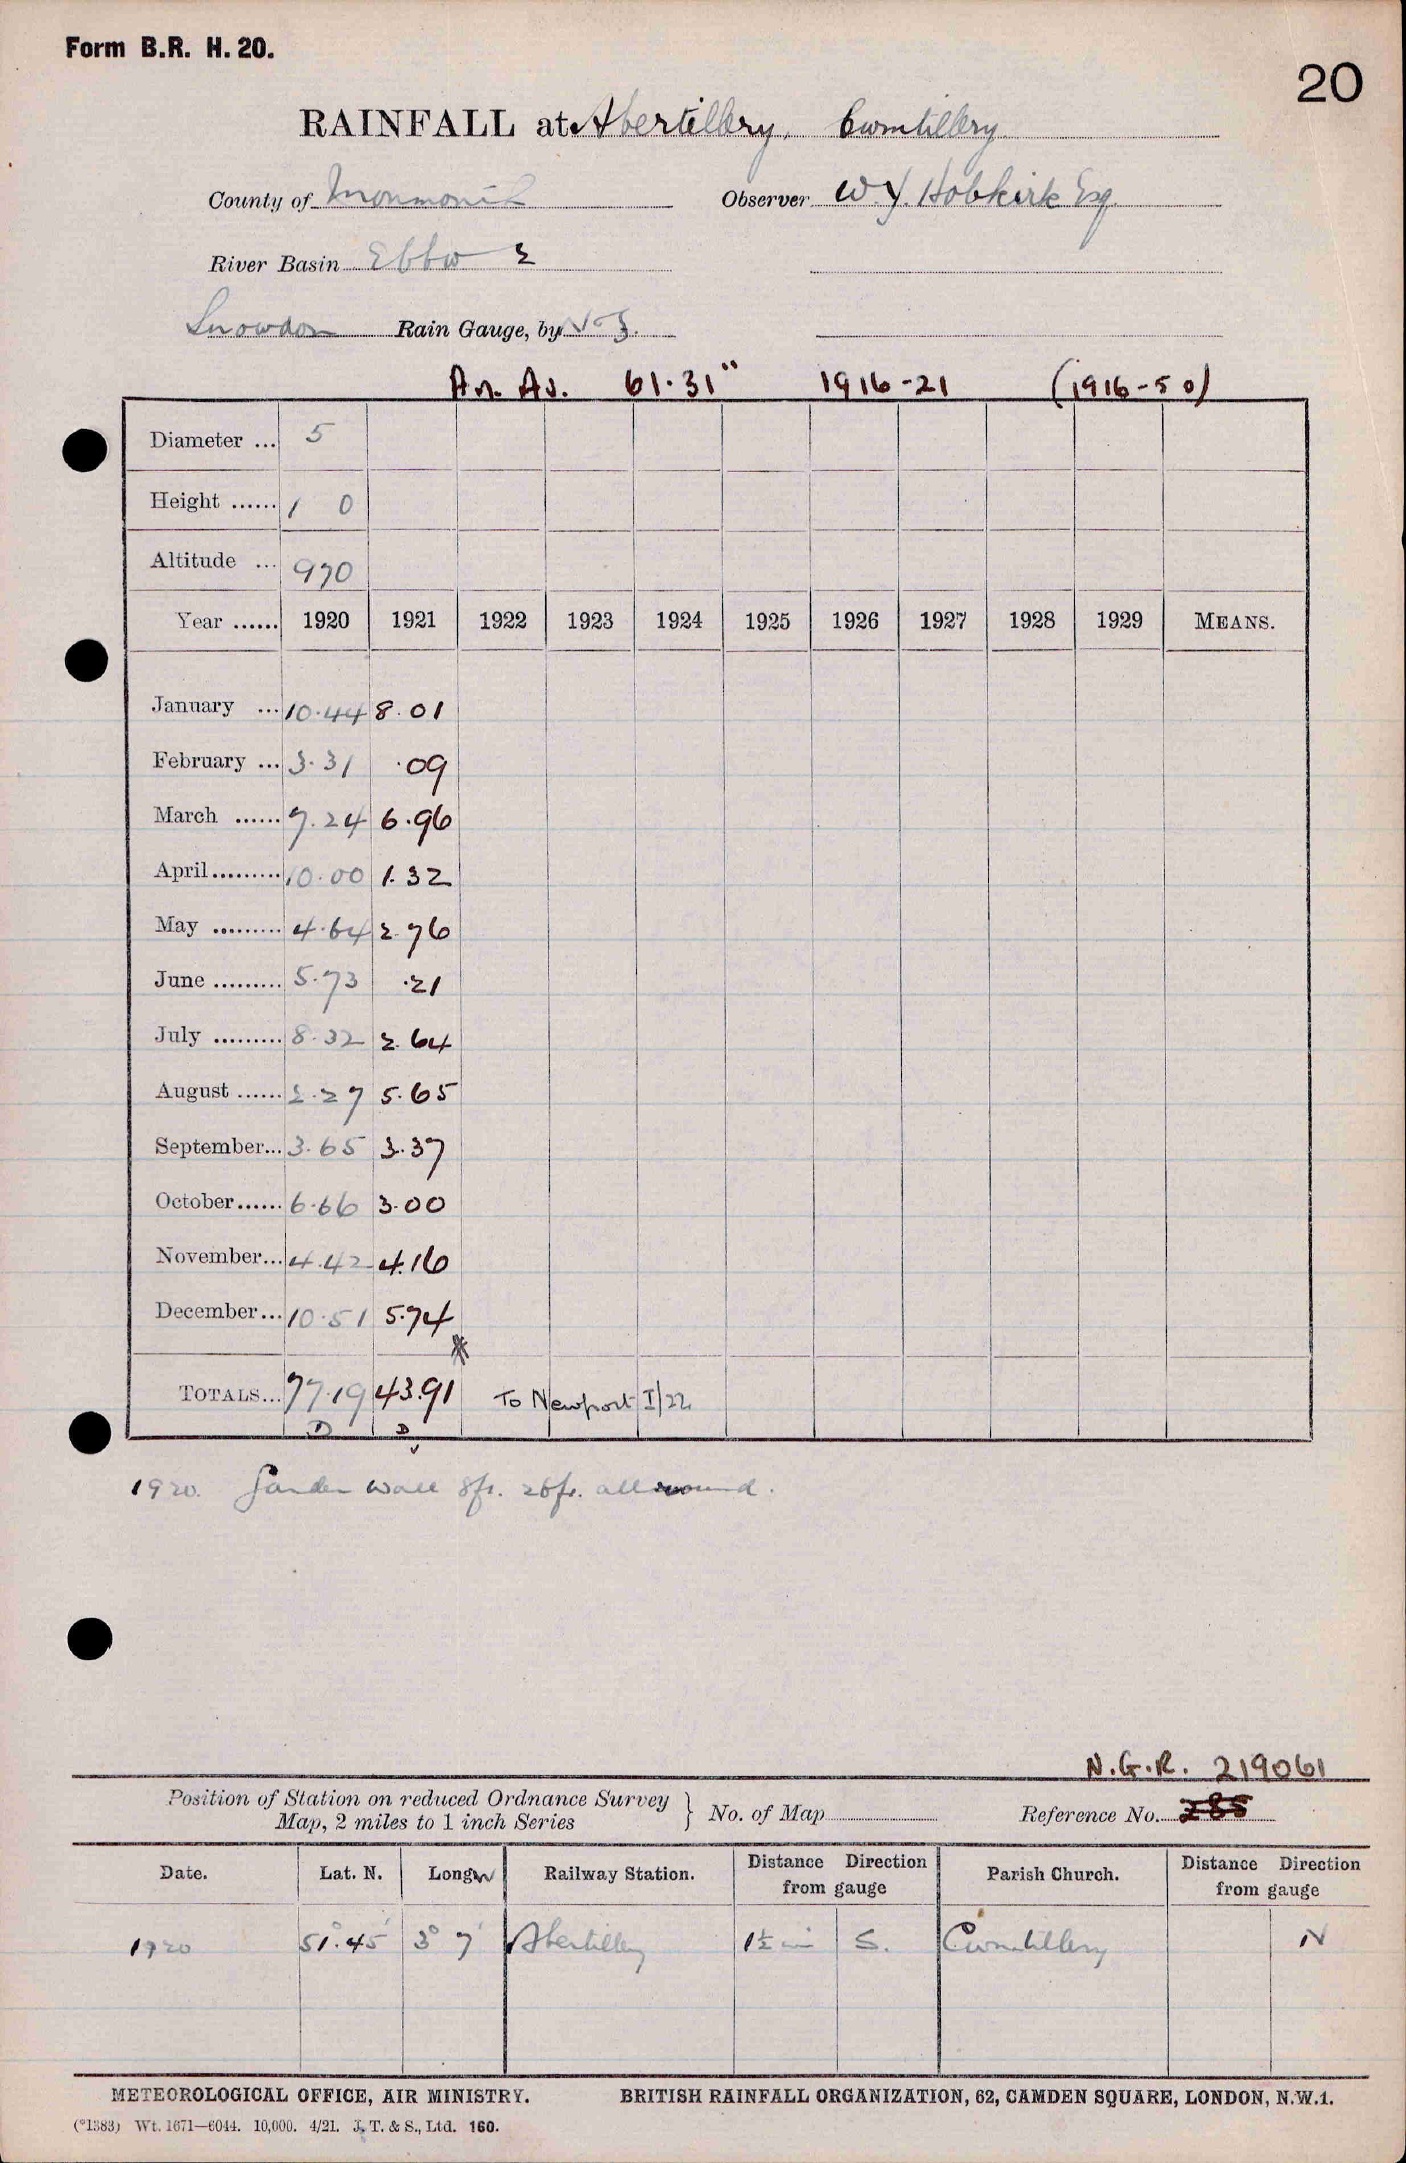 Form B.R. H. 20.
20
RAINFALL at Abertillery, Cwmtillery
County of Monmouth Observer W.Y. Hobkirk Esq
River Basin Ebbw E
Snowdon Rain Gauge, by N & Z.
An. Av. 61.31" 1916-21 (1916-50)
Diameter ... 5
Height ...... 1 0
Altitude ... 970
Year ...... 1920 1921 1922 1923 1924 1925 1926 1927 1928 1929 MEANS.
January ... 10.44 8.01
February ... 3.31 .09
March ...... 7.24 6.96
April ......... 10.00 1.32
May ......... 4.64 2.76
June ......... 5.73 .21
July ......... 8.32 2.64
August ...... 2.27 5.65
September... 3.65 3.37
October...... 6.66 3.00
November... 4.42 4.16
December... 10.51 5.74
*
TOTALS... 77.19 43.91 To Newport I/22
D D
✓
1920. Garden wall 8ft. 26ft. all round.
N.G.R. 219061
Position of Station on reduced Ordnance Survey
Map, 2 miles to 1 inch Series } No. of Map Reference No. 285
Date. Lat. N. Long W Railway Station. Distance Direction from gauge Parish Church. Distance Direction from gauge
1920 51° 45' 3° 7' Abertillery 1½ mi S. Cwmtillery N
METEOROLOGICAL OFFICE, AIR MINISTRY. BRITISH RAINFALL ORGANIZATION, 62, CAMDEN SQUARE, LONDON, N.W.1.
(*1383) Wt. 1671—6044. 10,000. 4/21. J. T. & S., Ltd. 160.